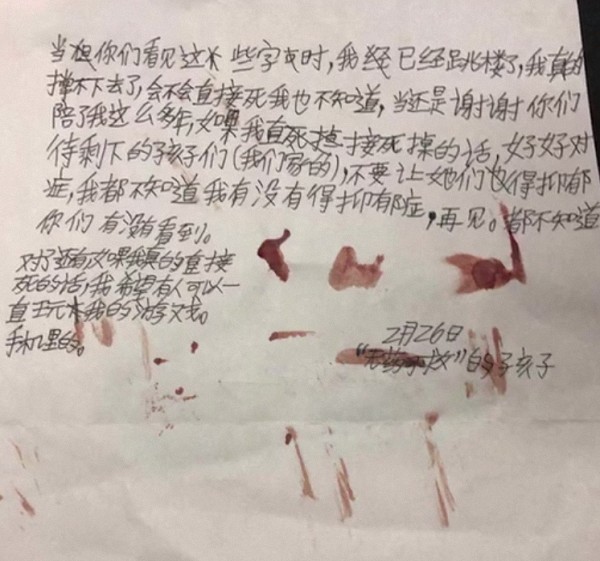 当你们看见这些字时，我经已经跳楼了，我真的
撑不下去了，会不会直接死我也不知道，当还是谢谢你们
陪了我这么多年，如果我直死掉接死掉的话，好好对
待剩下的孩子们（我们家的），不要让她们也得抑郁
症，我都不知道我有没有得抑郁症，再见。都不知道
你们有没有看到。
对了还有如果我真的直接
死的话，我希望有人可以一
直玩我的游戏。
手机里的。
2月26日
的孩子